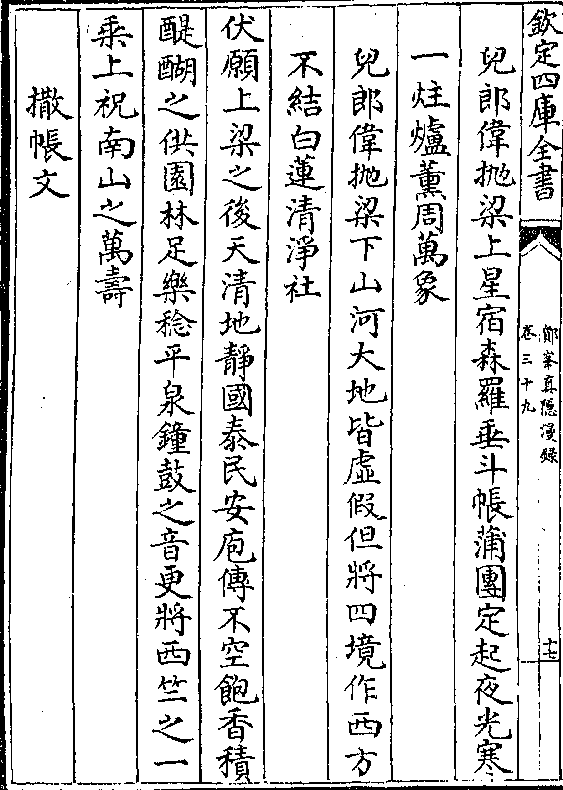 欽定四庫全書
鄮峯真隱漫録
卷三十九
十七
兒郎偉抛梁上星宿森羅垂斗帳蒲團定起夜光寒
一炷爐薰周萬象
兒郎偉抛梁下山河大地皆虛假但將四境作西方
不結白蓮清淨社
伏願上梁之後天清地靜國泰民安庖傳不空飽香積
醍醐之供園林足樂稔平泉鐘鼓之音更將西竺之一
乗上祝南山之萬壽
撒帳文